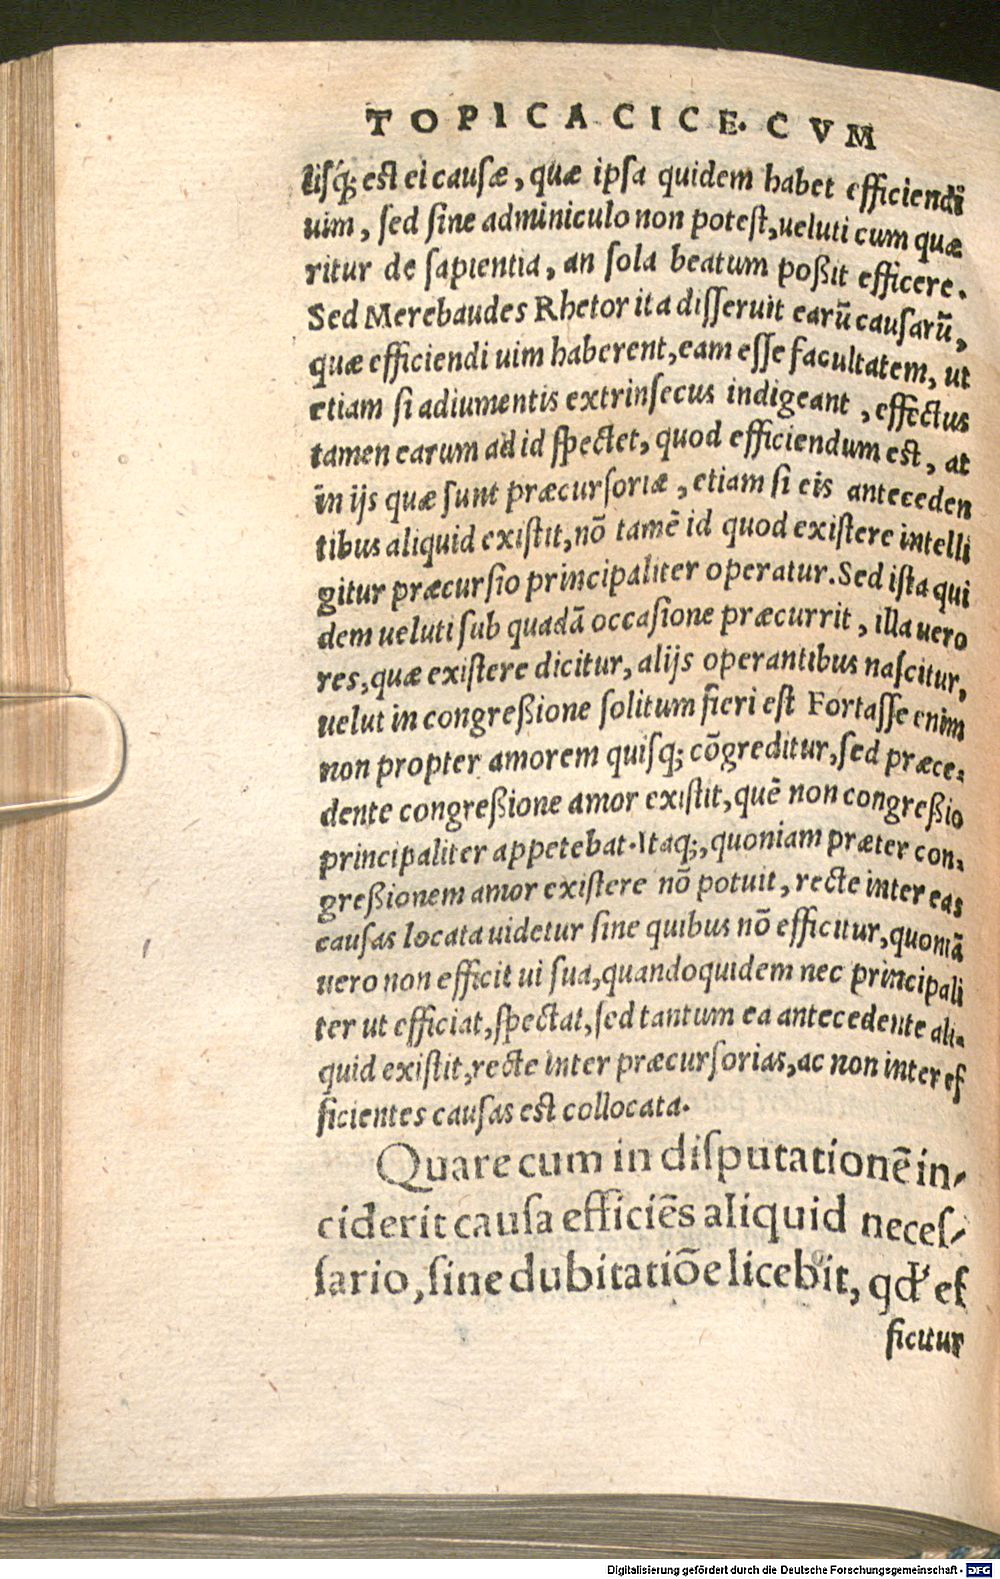 TOPICA CICE. CVM
lisq́; est ei causæ, quæ ipsa quidem habet efficiendi
uim, sed sine adminiculo non potest, ueluti cum quæ
ritur de sapientia, an sola beatum poßit efficere.
Sed Merebaudes Rhetor ita disseruit earũ causarũ,
quæ efficiendi uim haberent, eam esse facultatem, ut
etiam si adiumentis extrinsecus indigeant, effectus
tamen earum ad id spectet, quod efficiendum est, at
in ijs quæ sunt præcursoriæ, etiam si eis anteceden
tibus aliquid existit, nõ tamẽ id quod existere intelli
gitur præcursio principaliter operatur. Sed ista qui
dem ueluti sub quadã occasione præcurrit, illa uero
res, quæ existere dicitur, alijs operantibus nascitur,
uelut in congreßione solitum fieri est Fortasse enim
non propter amorem quisq; cõgreditur, sed præce-
dente congreßione amor existit, quẽ non congreßio
principaliter appetebat. Itaq;, quoniam præter con-
greßionem amor existere nõ potuit, recte inter eas
causas locata uidetur sine quibus nõ efficitur, quoniã
uero non efficit ui sua, quandoquidem nec principali
ter ut efficiat, spectat, sed tantum ea antecedente ali-
quid existit, recte inter præcursorias, ac non inter ef
ficientes causas est collocata.
Quare cum in disputationẽ in-
ciderit causa efficiẽs aliquid neces-
sario, sine dubitatiõe licebit, qđ ef
ficitur
Digitalisierung gefördert durch die Deutsche Forschungsgemeinschaft - DFG